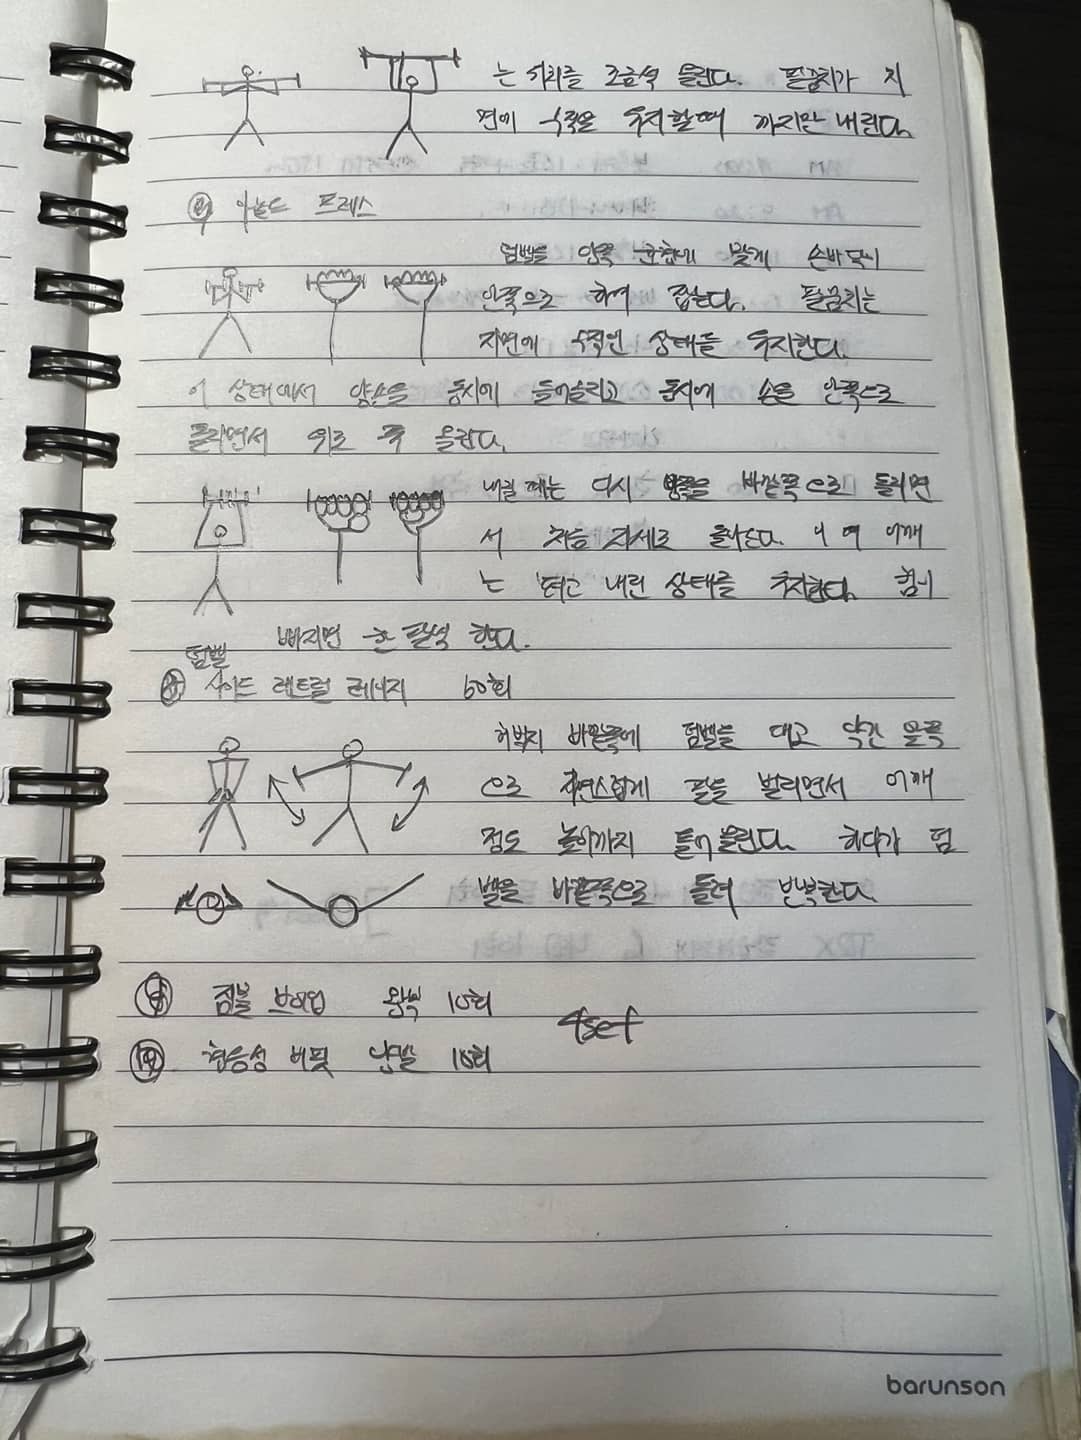 는 서리를 조금씩 올린다. 팔꿈치가 지
면에 수직을 유지할때 까지만 내린다.
아놀드 프레스
덤벨을 양쪽 균형에 맞게 손바닥이
안쪽으로 하여 잡는다. 팔꿈치는
지면에 수직인 상태를 유지한다.
이 상태에서 양손을 동시에 들어올리고 동시에 손을 안쪽으로
돌리면서 위로 쭉 올린다.
내릴 때는 다시 바깥쪽으로 돌리면
서 처음 자세로 돌아온다. 어깨
는 내린 상태를 유지한다. 힘이
빠지면 한 팔씩 한다.
덤벨
사이드 레트럴 레이지 60회
허벅지 바깥쪽에 덤벨을 대고 약간 앞쪽
으로 자연스럽게 팔을 벌리면서 어깨
정도 높이까지 들어 올린다. 하다가 덤
벨을 바깥쪽으로 돌려 반복한다.
점블 왕복 10회
4set
버핏 10회
barunson